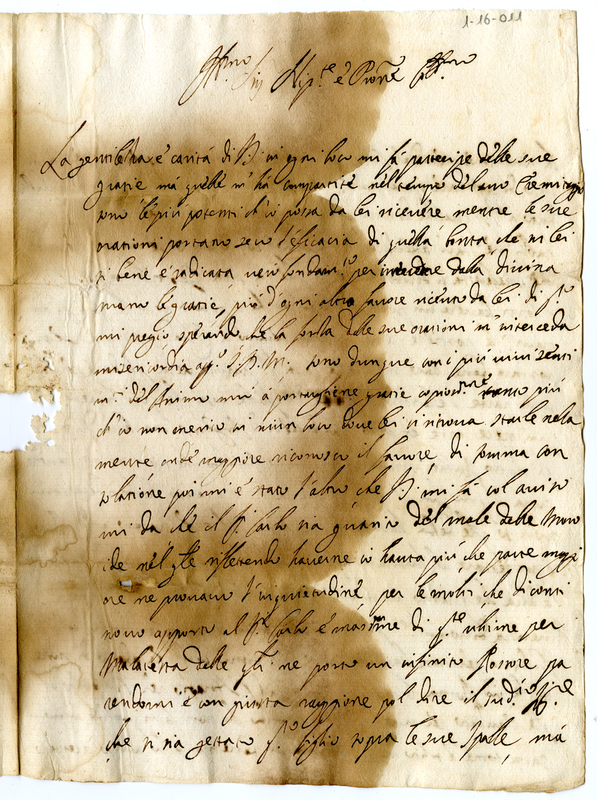 1-16-011
Ill.mo Sig Nip.te è Pron̄e
La gentilezza è carità di V. in ogni loco mi fà partecipe delle sue
gratie mà quelle m'hà compartite nel tempo del suo
sono le più potenti ch'io possa da lei ricevere mentre le sue
orationi portano seco l'efficacia di quella bontà che in lei
si bene è radicata per della divina
mano le gratie, più d'ogni altro favore ricevuto da lei di q.to
mi pregio sperando che la forza delle sue orationi m'interceda
misericordia sono dunque con i più vivi senti
m.ti del Animo mio à portargliene gratie tanto più
ch'io non merito in niun loco dove lei si ritrova starle nela
mente onde maggiore riconosco il favore di somma con
solatione poi mi è stato l'altro che V. mi fà col aviso
mi dà che il S. Carlo sia guarito del male delle Moro
ide nel q.le riflettendo haverne io havuta più che parte maggi
ore ne provavo l'inquietudine per le molti che di conti
novo apporta al S.r Carlo è massime di q.te ultime per
delle q.li ne porto un infinito Rossore pa
rendomi è con giusta raggione pol dire il sud.o
che si sia gettato q.to figlio sopra le sue spalle, mà